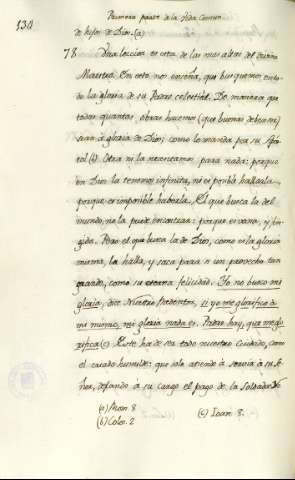 130
Primera parte de la Vida Comun
de hijos de Dios. (a)
78 Una leccion es esta de las mas altas del Divino
Maestro. En esto nos enseña, que busquemos en to-
do la gloria de su Padre celestial. De manera que
todas quantas obras hacemos (que buenas deben ser)
sean à gloria de Dios; como lo manda por su Apos-
tol (b) Otra ni la necesitamos para nada; porque
en Dios la tenemos infinita, ni es posible hallarla,
porque es imposible haberla. El que busca la del
mundo, no la puede encontrar: porque es vana, y fin-
gida. Pero el que busca la de Dios, como es la gloria
misma, la halla, y saca para si un provecho tan
grande, como su eterna felicidad. Yo no busco mi
gloria, dice Nuestro Redentor, si yo me glorifico à
mi mismo, mi gloria nada es. Padre hay, que me glo-
rifica (c) Este ha de ser todo nuestro cuidado, como
el criado humilde: que solo atiende à servir à su Se-
ñor, dejando à su cargo el pago de la soldada
(a) 8
(b) Colos. 2
(c) Ioan. 8.